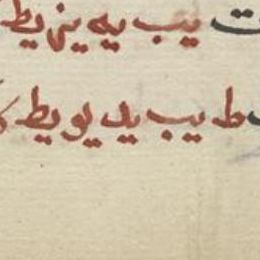 يب يه يز يط
ط يب يد يو يط